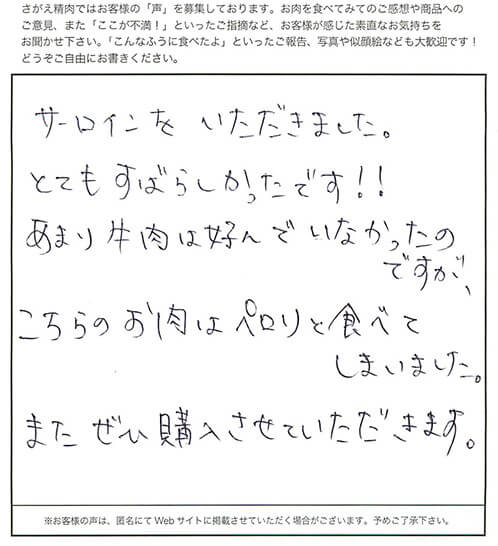 さがえ精肉ではお客様の「声」を募集しております。お肉を食べてみてのご感想や商品への
ご意見、また「ここが不満！」といったご指摘など、お客様が感じた素直なお気持ちを
お聞かせ下さい。「こんなふうに食べたよ」といったご報告、写真や似顔絵なども大歓迎です！
どうぞご自由にお書きください。
サーロインを いただきました。
とてもすばらしかったです!!
あまり牛肉は好んでいなかったの
ですが、
こちらのお肉はペロリと食べて
しまいました。
またぜひ購入させていただきます。
※お客様の声は、匿名にてWebサイトに掲載させていただく場合がございます。予めご了承下さい。